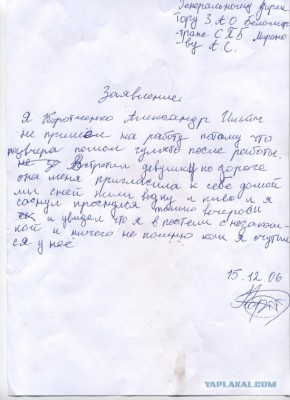 Генеральному дирек
тору ЗАО
транс СПб Мироно
-ву А С.
Заявление
Я Коротченко Александр Ильич
не пришёл на работу потому что
позвчера пошол гулять после работы.
встротил девушку по дороге
она меня пригласила к себе домой
мы с ней пили водку и пиво и я
заснул проснулся только вечером
и увидел что я в постели с незаком-
кой и ничего не помню как я очутил
ся у неё
15.12.06
YAPLAKAL.COM